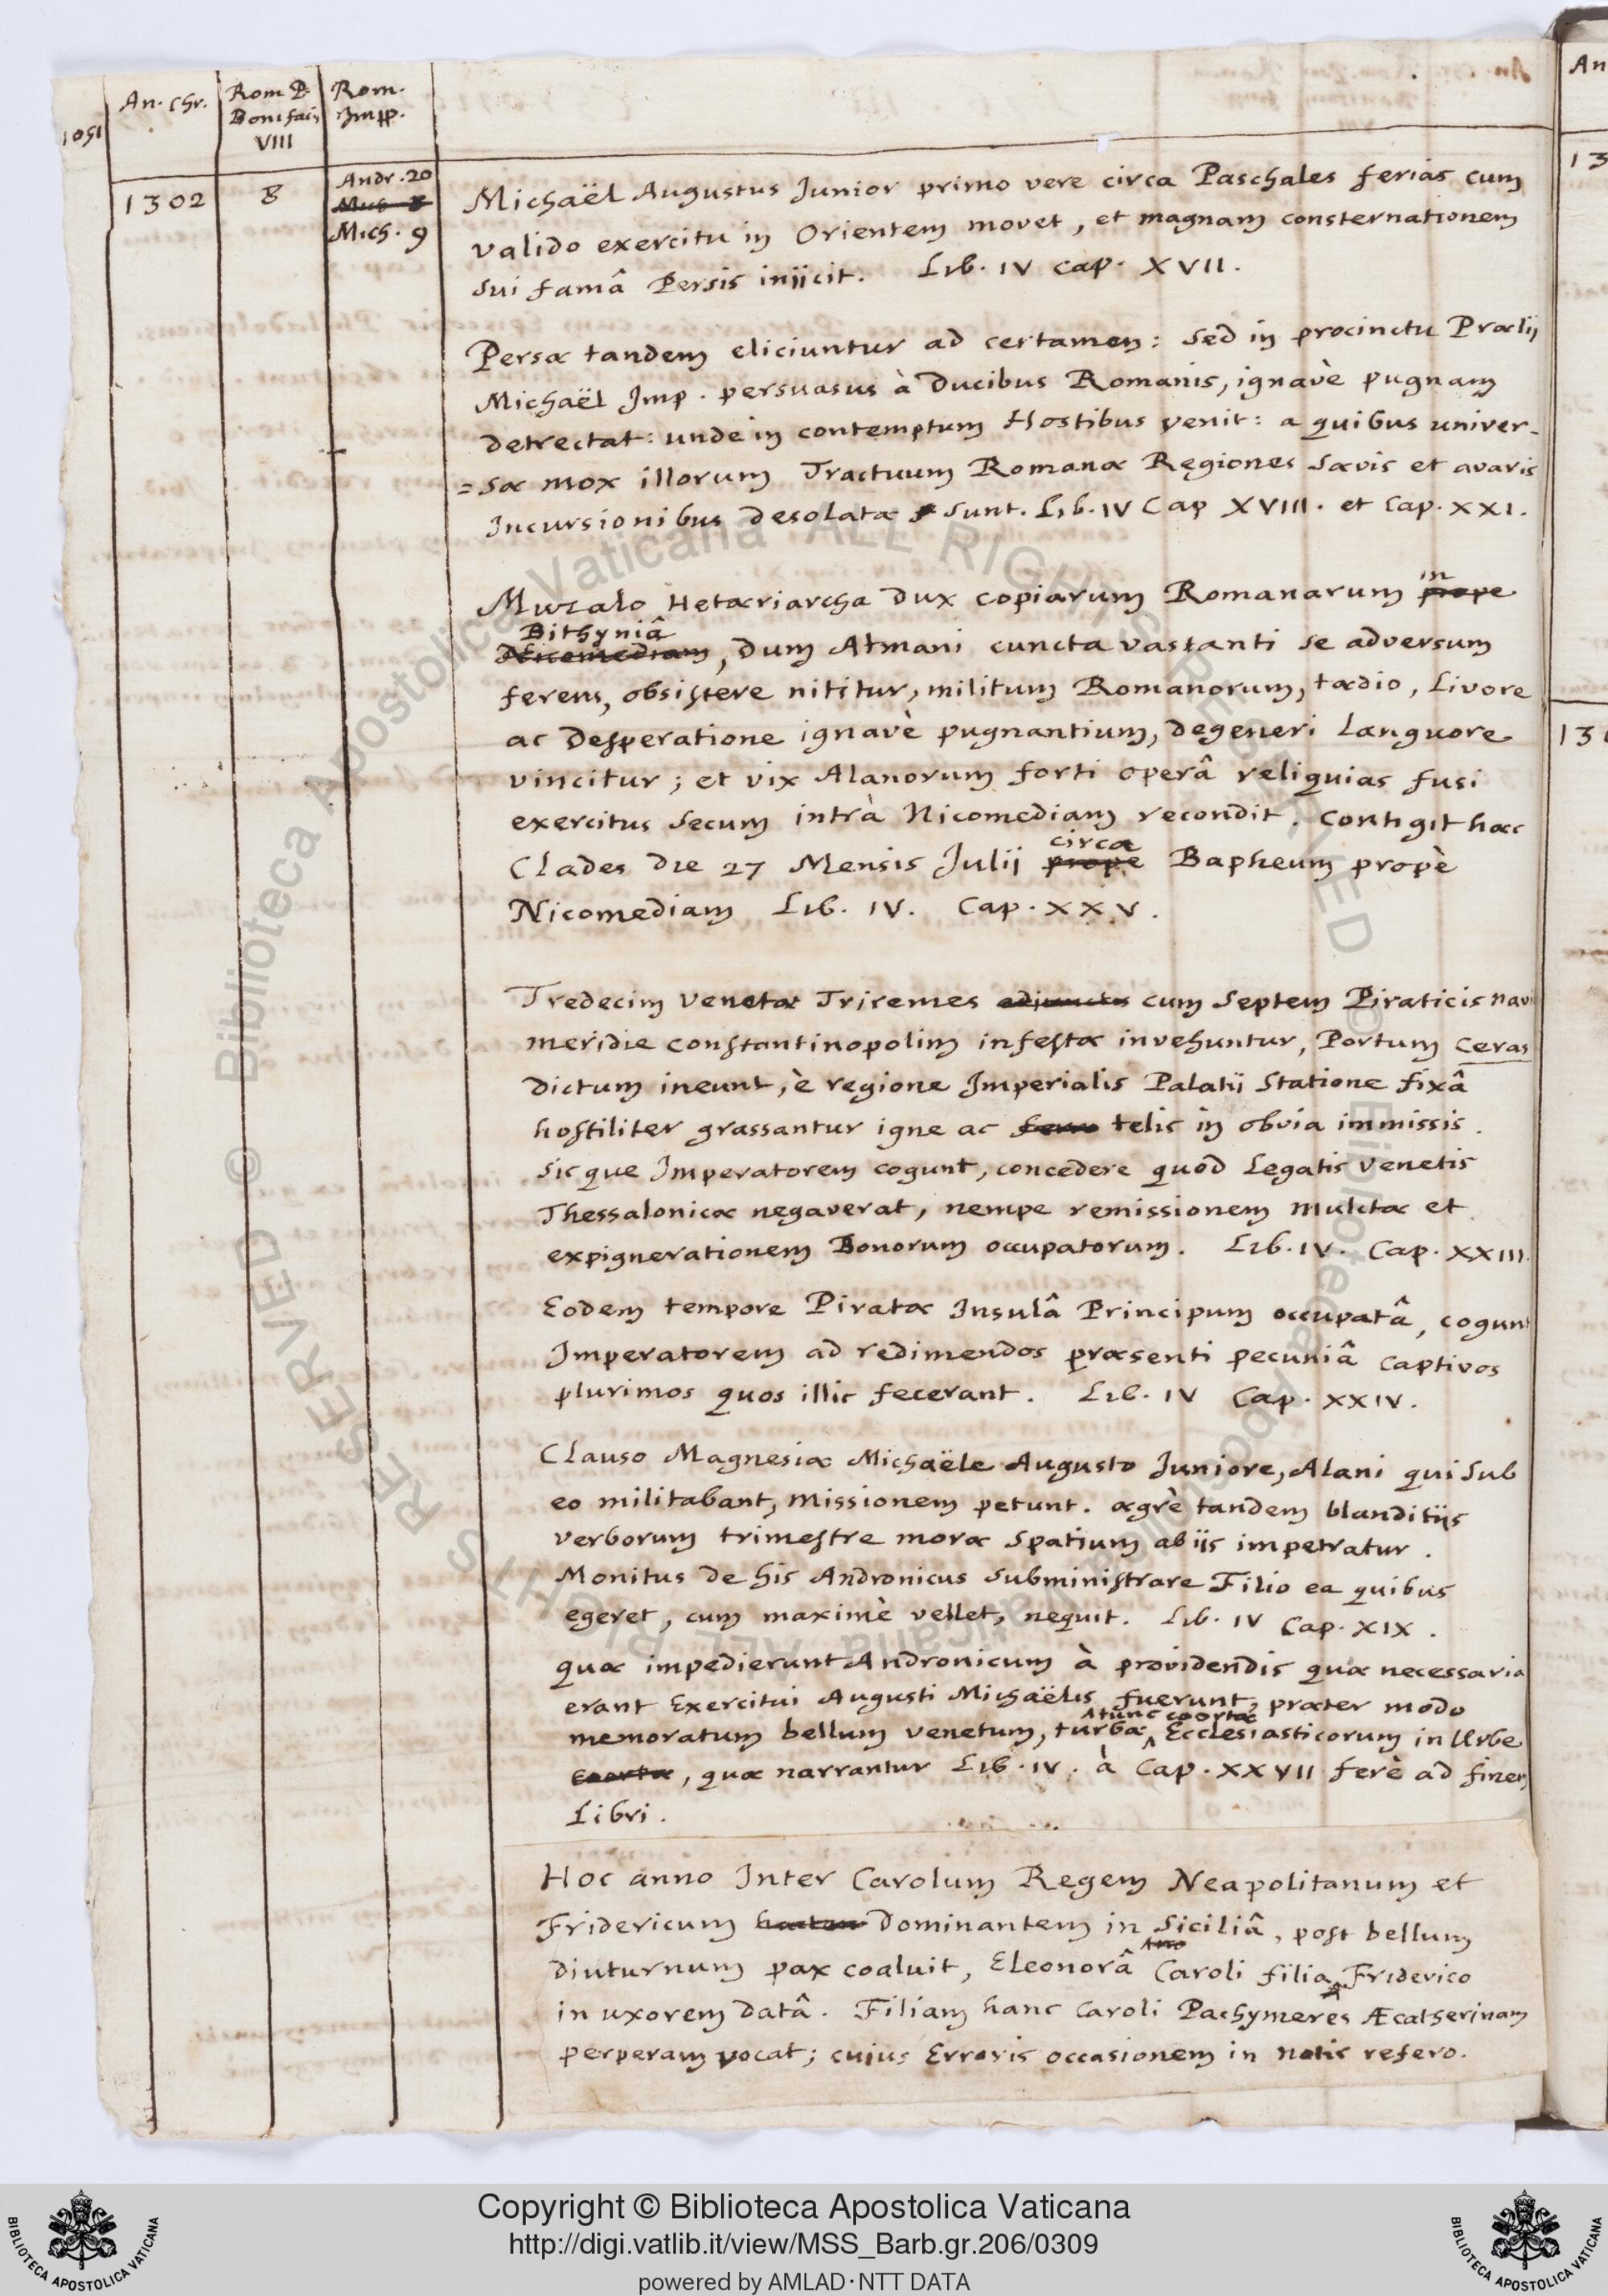 An. Chr.
Rom P
Bonifacij
VIII
Rom.
Impp.
1302
8
Andr. 20
Mich. 9
Michaël Augustus Junior primo vere circa Paschales ferias cum
valido exercitu in Orientem movet, et magnam consternationem
sui famâ Persis iniicit. Lib. IV cap. XVII.
Persæ tandem eliciuntur ad certamen: sed in procinctu Prælij
Michaël Imp. persuasus à Ducibus Romanis, ignavè pugnam
detrectat: unde in contemptum Hostibus venit: a quibus univer-
=sæ mox illorum Tractuum Romanæ Regiones sævis et avaris
Incursionibus desolatæ sunt. Lib. IV Cap XVIII. et Cap. XXI.
Muzalo Hetæriarcha Dux copiarum Romanarum in prope
Bithyniâ
Nicomediam, dum Atmani cuncta vastanti se adversum
ferens, obsistere nititur, militum Romanorum, tædio, livore
ac desperatione ignavè pugnantium, degeneri languore
vincitur; et vix Alanorum forti operâ reliquias fusi
exercitus secum intrà Nicomediam recondit. Contigit hæc
Clades die 27 Mensis Julij prope circa Bapheum propè
Nicomediam Lib. IV. Cap. XXV.
Tredecim Venetæ Triremes adjunctis cum septem Piraticis navi
meridie Constantinopolim infestæ invehuntur, Portum Ceras
dictum ineunt, è regione Imperialis Palatii statione fixâ
hostiliter grassantur igne ac ferro telis in obvia immissis.
sicque Imperatorem cogunt, concedere quod Legatis Venetis
Thessalonicæ negaverat, nempe remissionem mulctæ et
expignerationem Bonorum occupatorum. Lib. IV. Cap. XXIII.
Eodem tempore Piratæ Insulâ Principum occupatâ, cogunt
Imperatorem ad redimendos præsenti pecuniâ captivos
plurimos quos illic fecerant. Lib. IV Cap. XXIV.
Clauso Magnesiæ Michaële Augusto Juniore, Alani qui sub
eo militabant, missionem petunt. ægrè tandem blanditijs
verborum trimestre moræ spatium ab ijs impetratur.
Monitus de his Andronicus subministrare Filio ea quibus
egeret, cum maximè vellet, nequit. Lib. IV Cap. XIX.
quæ impedierunt Andronicum à providendis quæ necessaria
erant Exercitui Augusti Michaëlis fuerunt, præter modo
memoratum bellum Venetum, turbæ tunc coortæ Ecclesiasticorum in Urbe
coortæ, quæ narrantur Lib. IV. à Cap. XXVII ferè ad finem
Libri.
Hoc anno Inter Carolum Regem Neapolitanum et
Fridericum Dominantem in Siciliâ, post bellum
diuturnum pax coaluit, Eleonorâ Caroli filia Friderico
in uxorem datâ. Filiam hanc Caroli Pachymeres Æcatherinam
perperam vocat; cuius Erroris occasionem in notis refero.
An
13
13
© Biblioteca Apostolica Vaticana ALL RIGHTS RESERVED
© Biblioteca Apostolica Vaticana ALL RIGHTS RESERVED
BIBLIOTECA APOSTOLICA VATICANA
Copyright © Biblioteca Apostolica Vaticana
http://digi.vatlib.it/view/MSS_Barb.gr.206/0309
powered by AMLAD·NTT DATA
BIBLIOTECA APOSTOLICA VATICANA